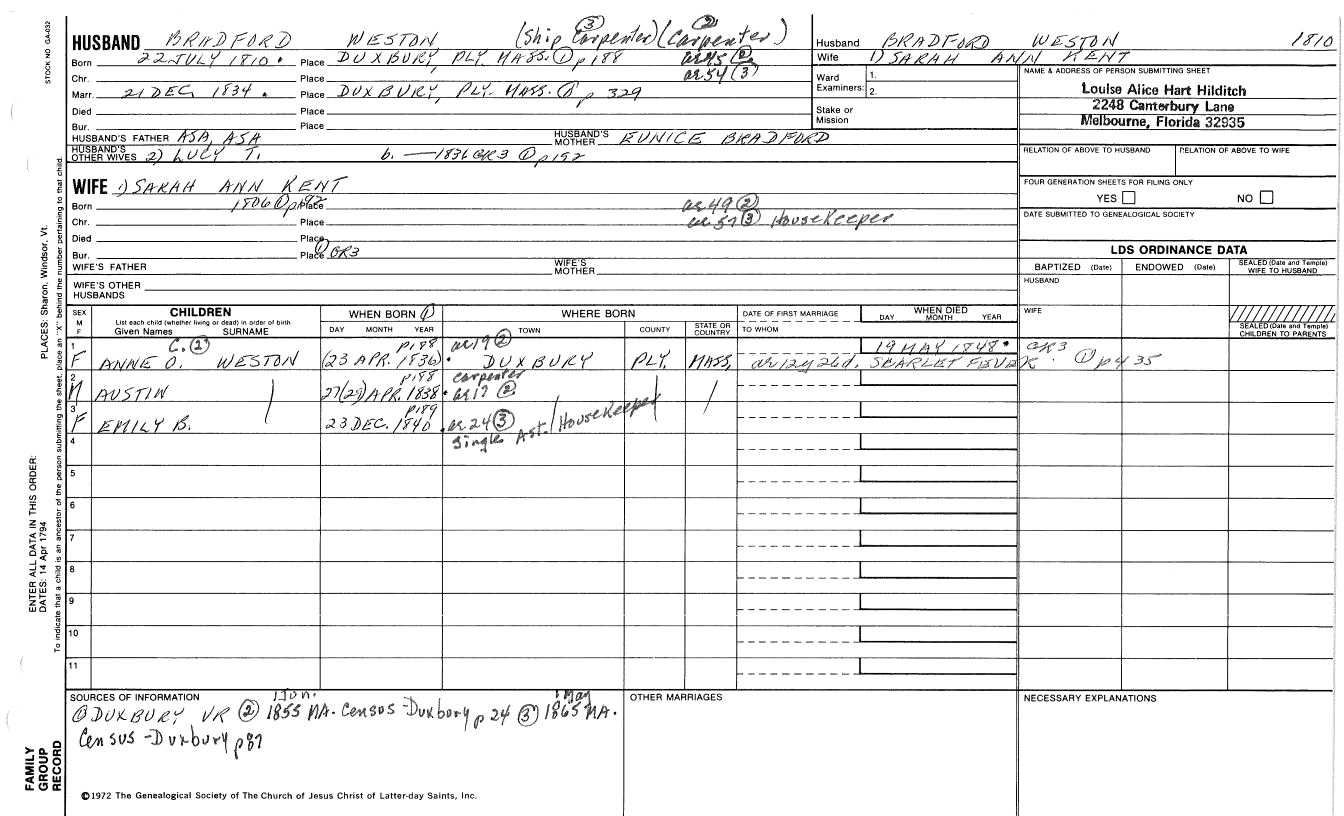 STOCK NO. GA-032
HUSBAND BRADFORD WESTON (Ship Carpenter) ③ (Carpenter) ②
Born 22 JULY 1810. Place DUXBURY, PLY. MASS. ① p188 ae 45 ②
Chr. Place ae 54 ③
Marr. 21 DEC. 1834. Place DUXBURY, PLY. MASS. ① p 329
Died Place
Bur. Place
HUSBAND'S FATHER ASA, ASA HUSBAND'S MOTHER EUNICE BRADFORD
HUSBAND'S OTHER WIVES 2) LUCY T. b. —1836 GR3 ① p192
WIFE 1) SARAH ANN KENT
Born 1806 ① p192 Place ae 49 ②
Chr. Place ae 57 ③ Housekeeper
Died Place
Bur. Place ① GR3
WIFE'S FATHER WIFE'S MOTHER
WIFE'S OTHER HUSBANDS
Husband BRADFORD WESTON 1810
Wife 1) SARAH ANN KENT
Ward Examiners: 1. 2.
Stake or Mission
NAME & ADDRESS OF PERSON SUBMITTING SHEET
Louise Alice Hart Hilditch
2248 Canterbury Lane
Melbourne, Florida 32935
RELATION OF ABOVE TO HUSBAND RELATION OF ABOVE TO WIFE
FOUR GENERATION SHEETS FOR FILING ONLY
YES NO
DATE SUBMITTED TO GENEALOGICAL SOCIETY
LDS ORDINANCE DATA
BAPTIZED (Date) ENDOWED (Date) SEALED (Date and Temple) WIFE TO HUSBAND
HUSBAND
WIFE
SEALED (Date and Temple) CHILDREN TO PARENTS
SEX M F CHILDREN WHEN BORN ① WHERE BORN DATE OF FIRST MARRIAGE WHEN DIED
List each child (whether living or dead) in order of birth
Given Names SURNAME DAY MONTH YEAR TOWN COUNTY STATE OR COUNTRY TO WHOM DAY MONTH YEAR
1 C. ② p188 ae 19 ② 19 MAY 1848. GR3
F ANNE O. WESTON (23 APR. 1836). DUXBURY PLY. MASS. ae 12y 26d. SCARLET FEVER. ① p435
2 p188 carpenter
M AUSTIN 27(29) APR. 1838. ae 17 ②
3 p189
F EMILY B. 23 DEC. 1840. ae 24 ③ Ast. Housekeeper
4 Single
5
6
7
8
9
10
11
SOURCES OF INFORMATION OTHER MARRIAGES NECESSARY EXPLANATIONS
1 Jun. 1 May
① DUXBURY VR ② 1855 MA. Census - Duxbury p 24 ③ 1865 MA.
Census - Duxbury p87
©1972 The Genealogical Society of The Church of Jesus Christ of Latter-day Saints, Inc.
PLACES: Sharon, Windsor, Vt.
ENTER ALL DATA IN THIS ORDER:
DATES: 14 Apr 1794
To indicate that a child is an ancestor of the person submitting the sheet, place an "X" behind the number pertaining to that child.
FAMILY GROUP RECORD